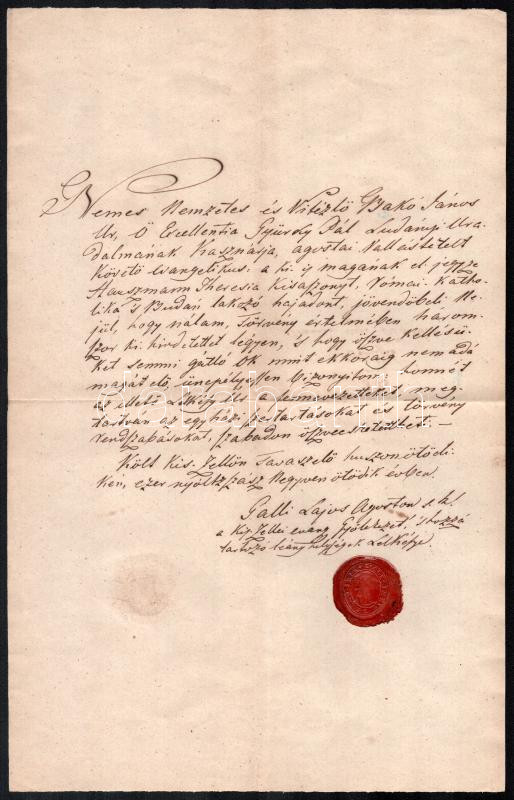 Nemes Nemzetes és Vitézlő Bakó János
Úr, Ő Excellentia Gyürky Pál Ludányi Ura-
dalmának Kasznárja, ágostai Vallástételt
követő Evangelikus: a ki is magának el jegyze
Hauszmann Theresia kisaszonyt, Római Katho-
lika 's Budán lakozó hajadont, jövendőbeli Ne-
jül, hogy nálam, Törvény értelmében három-
szor ki hirdettetett legyen, és hogy öszve kelléseü-
ket semmi gátló ok mint ekkoráig nem adá
magát elő, ünnepélyesen bizonyítom; honnét
az illető Lelkész Úr a
tartván az egyházi szertartásokat és törvény
rendszabásokat, szabadon öszveesketheti. —
Költ Kis Zellőn Tavaszelő huszonötödi-
kén, ezer nyoltzszász Negyvenötödik évben.
Galli Lajos Ágoston s. k.
a Kis Zellei evang. Gyülekezet, 's hozzá
tartozó leány helységek Lelkésze.
darabanth